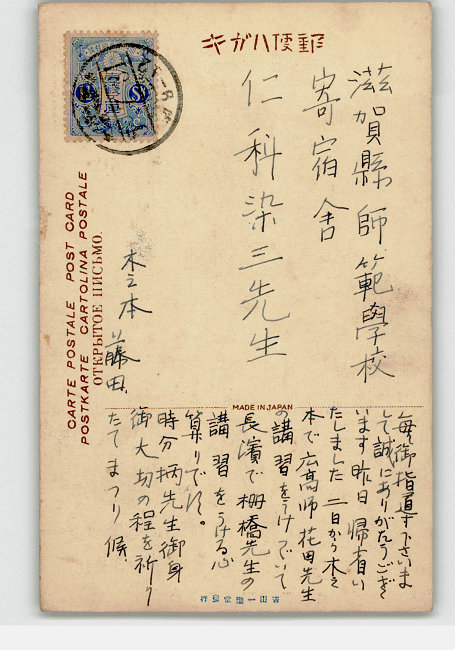 郵便ハガキ
滋賀縣師範學校
寄宿舍
仁科染三先生
木之本
藤田
CARTE POSTALE POST CARD
POSTKARTE CARTOLINA POSTALE
ОТКРЫТОЕ ПИСЬМО.
MADE IN JAPAN
毎々御指導下さいま
して誠にありがたうござ
います 昨日帰着い
たしました 二日から木之
本で広高師花田先生
の講習をうけついで
長濱で棚橋先生の
講習をうける心
算りです。
時分柄先生御身
御大切の程を祈り
たてまつり候